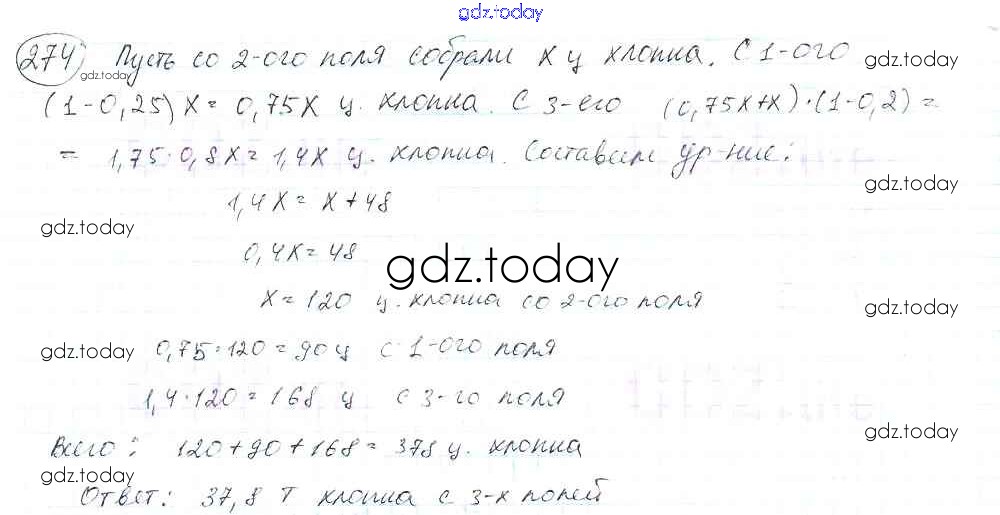 gdz.today
274) Пусть со 2-ого поля собрали x ц хлопка. С 1-ого gdz.today
gdz.today
(1-0,25)x = 0,75x ц. хлопка. С 3-его (0,75x+x)·(1-0,2) =
gdz.today
= 1,75·0,8x = 1,4x ц. хлопка. Составим ур-ние:
gdz.today
1,4x = x+48
gdz.today
0,4x = 48
gdz.today
x = 120 ц. хлопка со 2-ого поля
gdz.today
gdz.today 0,75·120 = 90 ц с 1-ого поля
1,4·120 = 168 ц с 3-го поля
gdz.today
Всего: 120+90+168 = 378 ц. хлопка
gdz.today
Ответ: 37,8 т хлопка с 3-х полей